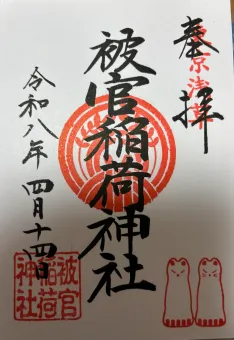 東京浅草
奉拝
被官稲荷神社
令和八年四月十四日
被官
稲荷
神社